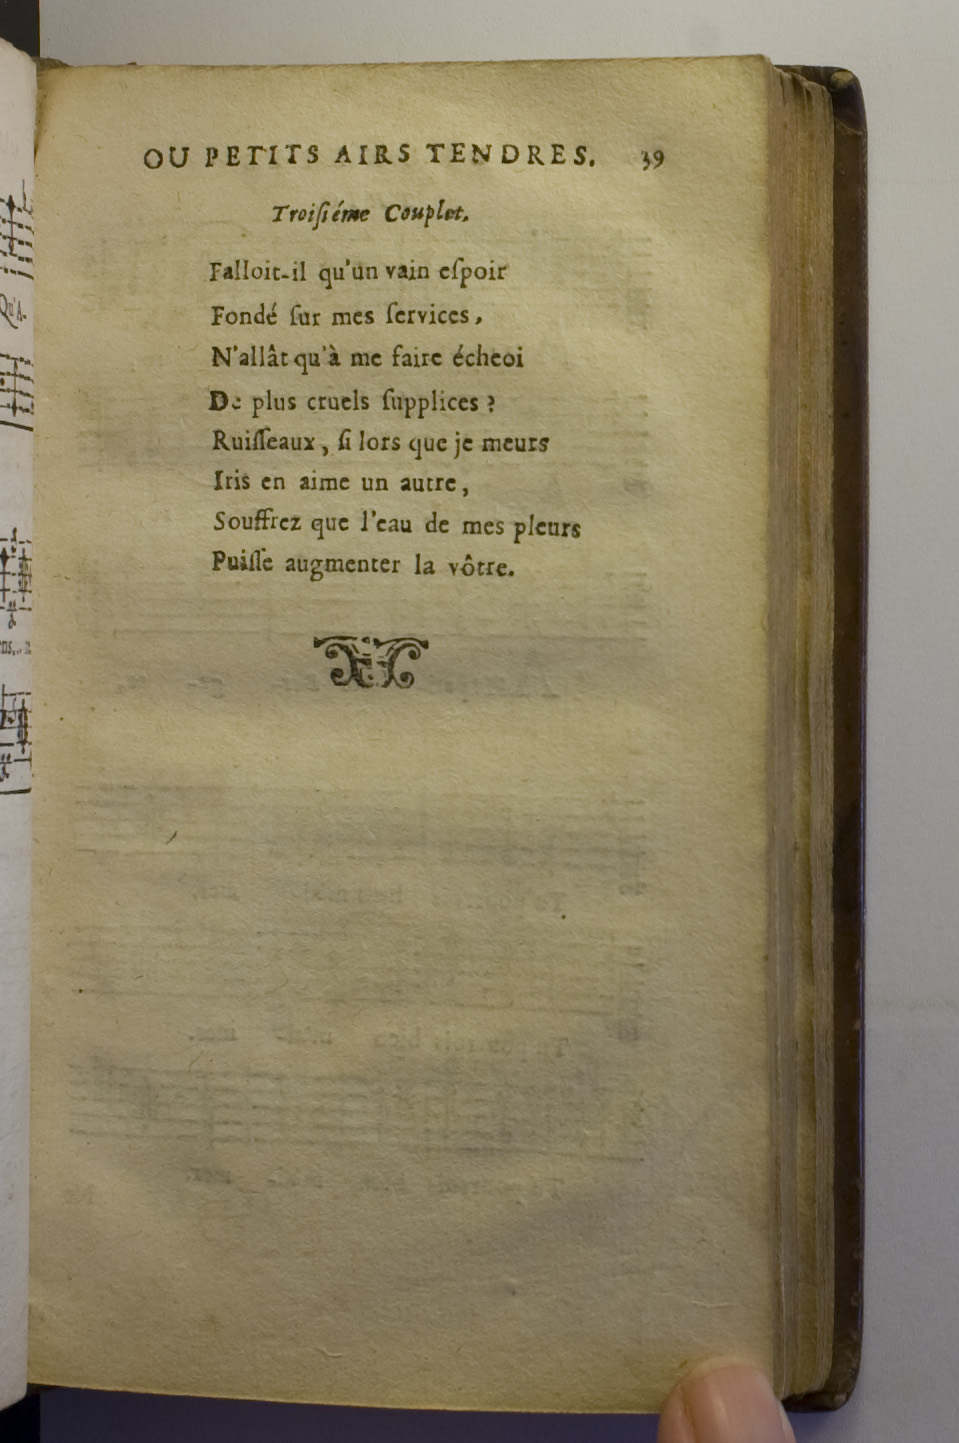 OU PETITS AIRS TENDRES. 39
Troiſiéme Couplet.
Falloit-il qu'un vain eſpoir
Fondé ſur mes ſervices,
N'allât qu'à me faire écheoi
De plus cruels ſupplices ?
Ruiſſeaux, ſi lors que je meurs
Iris en aime un autre,
Souffrez que l'eau de mes pleurs
Puiſſe augmenter la vôtre.
Qu'A-